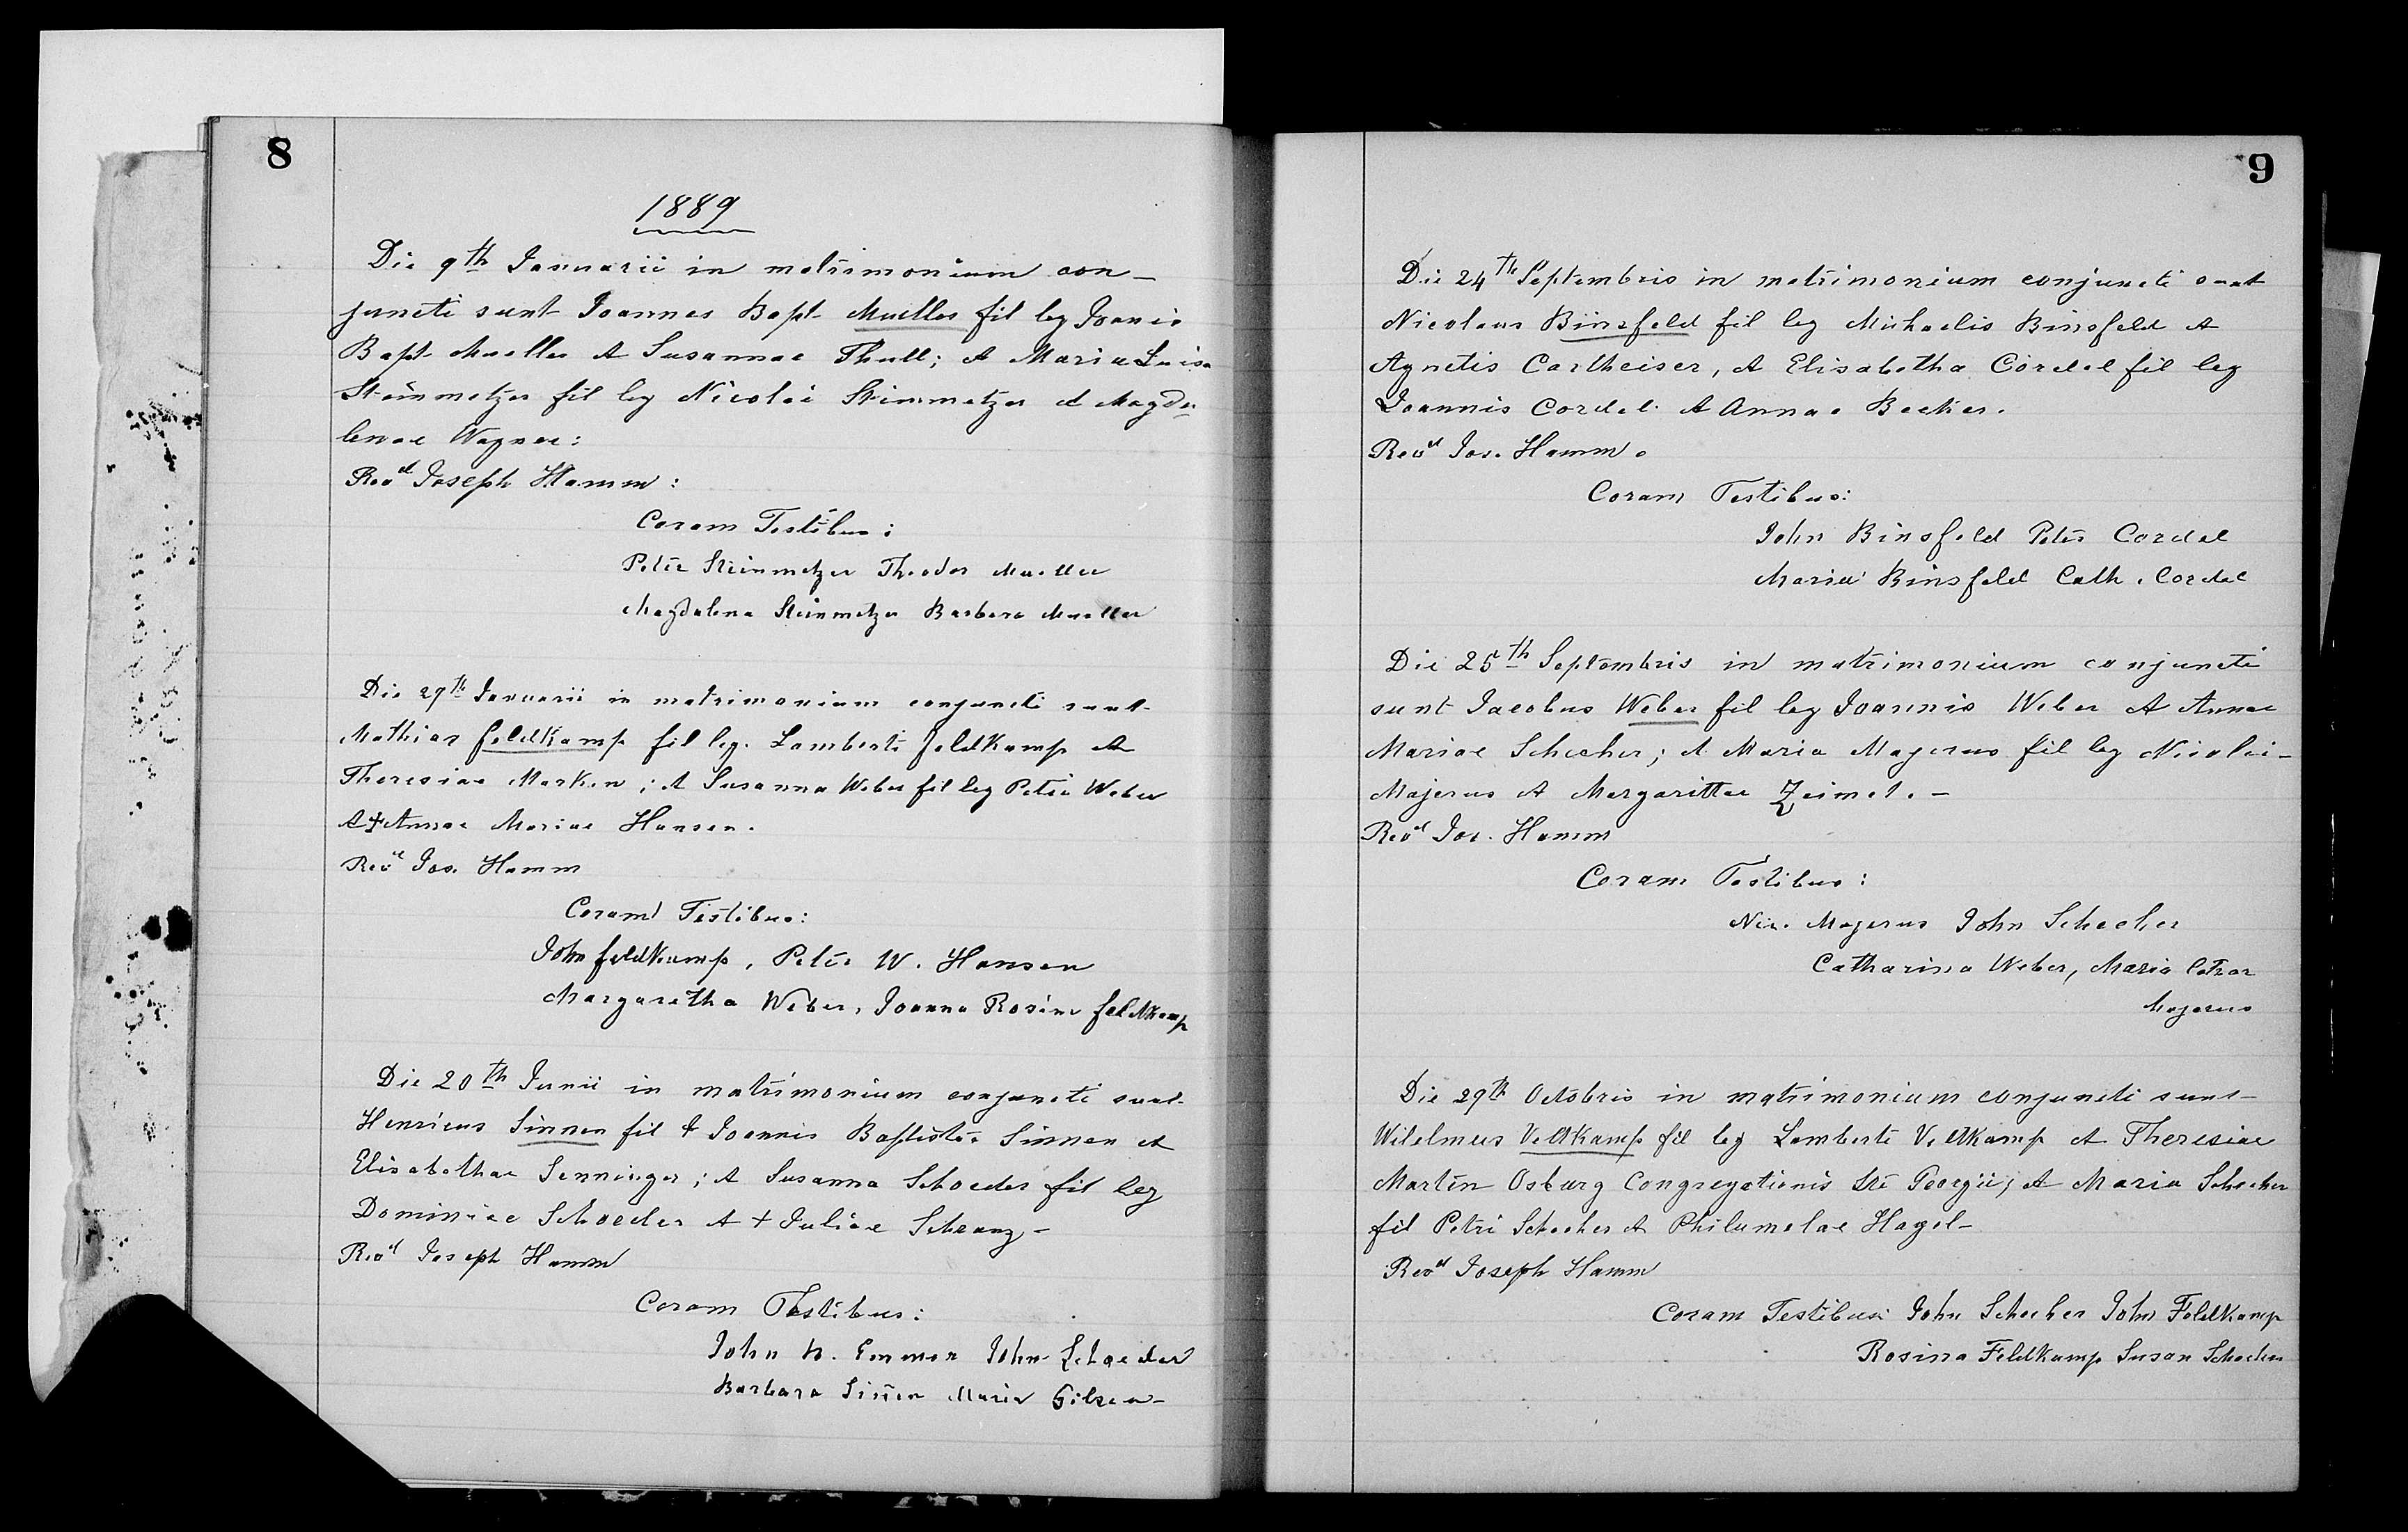 8
1889
Die 9th Januarii in matrimonium con-
juncti sunt Joannes Bapt Mueller fil leg Joanis
Bapt Mueller et Susannae Thull; et Maria Luisa
Steinmetzer fil leg Nicolai Steinmetzer et Magda
lenae Wagner:
Revd Joseph Hamm:
Coram Testibus:
Peter Steinmetzer Theodor Mueller
Magdalena Steinmetzer Barbara Mueller
Die 29th Januarii in matrimonium conjuncti sunt
Mathias Feldkamp fil leg. Lamberti Feldkamp et
Theresiae Marken; et Susanna Weber fil leg Petri Weber
et † Annae Mariae Hansen.
Revd Jos. Hamm
Coram Testibus:
John Feldkamp, Peter W. Hansen
Margaretha Weber, Joanna Rosina Feldkamp
Die 20th Junii in matrimonium conjuncti sunt
Henricus Sinnen fil † Joannis Baptistae Sinnen et
Elisabethae Senninger; et Susanna Schoeder fil leg
Dominici Schoeder et + Juliae Schranz-
Revd Joseph Hamm
Coram Testibus:
John N. Emmer John Schoeder
Barbara Sinen Maria Gilsen-
9
Die 24th Septembris in matrimonium conjuncti sunt
Nicolaus Binsfeld fil leg Michaelis Binsfeld et
Agnetis Cartheiser, et Elisabetha Cordel fil leg
Joannis Cordel. et Annae Becker.
Revd Jos. Hamm.
Coram Testibus:
John Binsfeld Peter Cordel
Maria Binsfeld Cath. Cordel
Die 25th Septembris in matrimonium conjuncti
sunt Jacobus Weber fil leg Joannis Weber et Annae
Mariae Schecher; et Maria Majerus fil leg Nicolai-
Majerus et Margarittae Zeimet.-
Revd Jos. Hamm
Coram Testibus:
Nic. Majerus John Schecher
Catharina Weber, Maria
Majerus
Die 29th Octobris in matrimonium conjuncti sunt-
Wilelmus Veltkamp fil leg Lamberti Veltkamp et Theresiae
Marten Osburg Congregationis Sti Georgii; et Maria Schecher
fil Petri Schecher et Philumelae Hagel-
Revd Joseph Hamm
Coram Testibus: John Schecher John Feldkamp
Rosina Feldkamp Susan Schecher